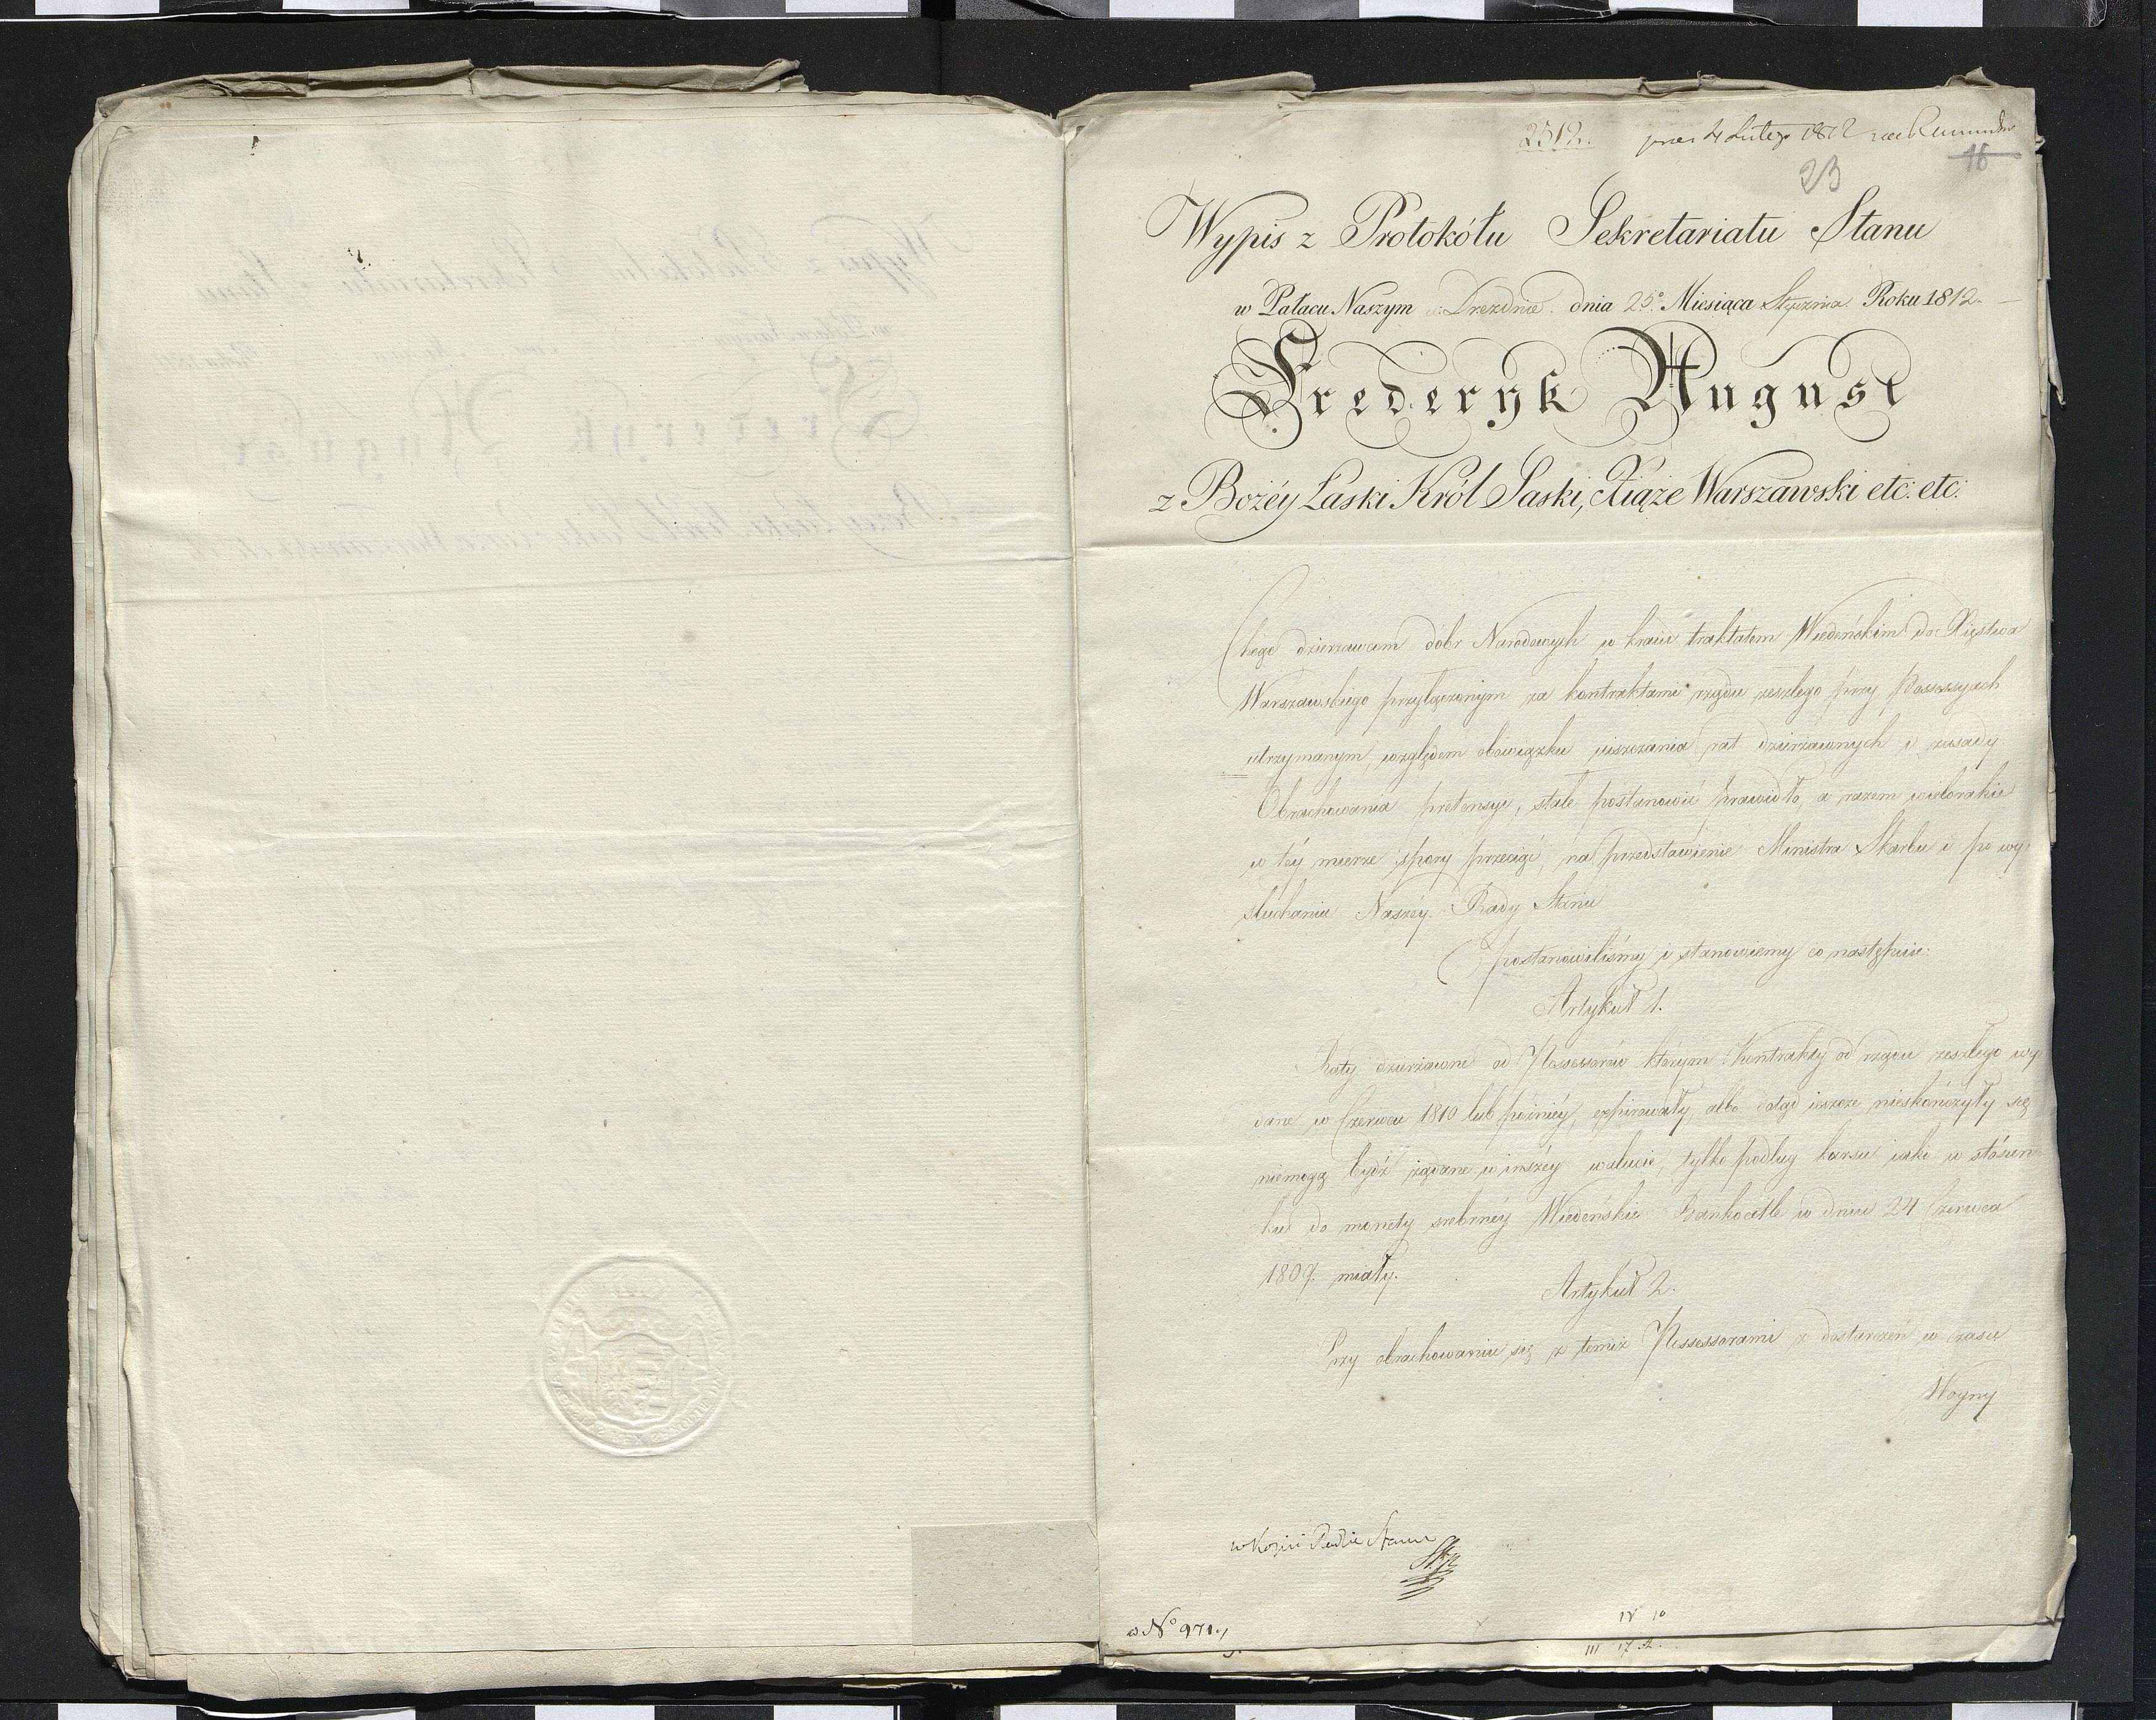 2512. 4 Lutego 1812
16
23
Wypis z Protokółu Sekretariatu Stanu
w Pałacu Naszym w Dreznie dnia 25º Miesiąca Stycznia Roku 1812.
Frederyk August
z Bożéy Łaski Król Saski, Xiąże Warszawski etc: etc:
Chcąc dzierzawcom dóbr Narodowych w kraiu traktatem Wiedeńskim do Xięstwa
Warszawskiego przyłączonym za kontraktami rządu zeszłego przy Possessyach
utrzymanym, względem obowiązku uiszczania rat dzierżawnych i zasady
Obrachowania pretensyi, stałe postanowić prawidło, a razem wielorakie
w téy mierze spory przeciąć, na przedstawienie Ministra Skarbu i po wy-
słuchaniu Naszéy Rady Stanu
postanowiliśmy i stanowiemy co następuie:
Artykuł 1.
Raty dzierżawne od Possessorów którym Kontrakty od rządu zeszłego wy-
dane w Czerwcu 1810 lub poźniéy, expirowały, albo dotąd ieszcze nieskończyły się
niemogą bydź żądane w inszéy walucie, tylko podług kursu iaki w stósun-
ku do monety srebrnéy Wiedeńskie Bankocetle w dniu 24 Czerwca
1809. miały.
Artykuł 2.
Przy obrachowaniu się z temiż Possessorami z dostarczeń w czasie
Woyny
w Kopii Radzie Stanu
a Nº 971.
IV 10
III 17